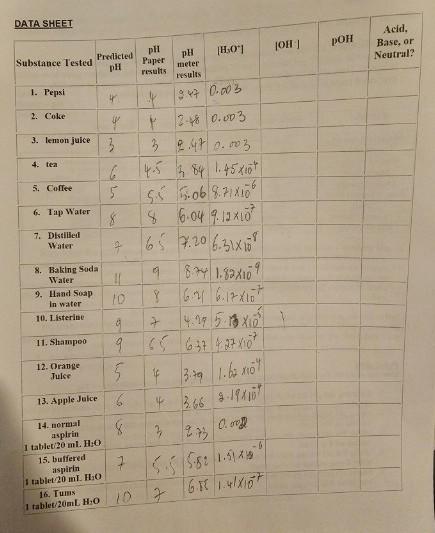 DATA SHEET
Substance Tested | Predicted pH | pH Paper results | pH meter results | [H₃O⁺] | [OH⁻] | pOH | Acid, Base, or Neutral?
1. Pepsi 4 4 2.47 0.003
2. Coke 4 4 2.48 0.003
3. lemon juice 3 3 2.47 0.003
4. tea 6 4.5 3.84 1.45x10⁻⁴
5. Coffee 5 5.5 5.06 8.71x10⁻⁶
6. Tap Water 8 8 6.04 9.12x10⁻⁷
7. Distilled Water 7 6.5 7.20 6.31x10⁻⁸
8. Baking Soda Water 11 9 8.74 1.82x10⁻⁹
9. Hand Soap in water 10 8 6.21 6.17x10⁻⁷
10. Listerine 9 7 4.29 x10⁻⁵
11. Shampoo 9 6.5 6.37 4.27x10⁻⁷
12. Orange Juice 5 4 3.79 1.62x10⁻⁴
13. Apple Juice 6 4 3.66 2.19x10⁻⁴
14. normal aspirin 1 tablet/20 mL H₂O 8 3 2.73 0.002
15. buffered aspirin 1 tablet/20 mL H₂O 7 5.5 5.82 1.51x10⁻⁶
16. Tums 1 tablet/20mL H₂O 10 7 1.41x10⁻⁷